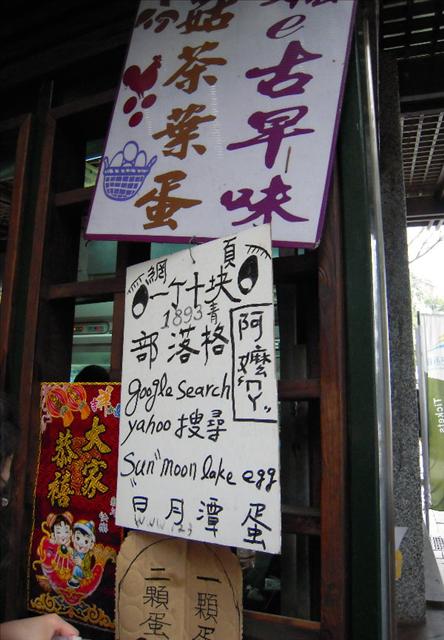 菇茶葉蛋
e古早味
網頁
一丁十块
1893青
部落格
阿嬤ㄟ丫
google search
yahoo 搜尋
"Sun" moon lake egg
日月潭 蛋
大家
恭禧
一顆蛋
二顆蛋
Tickets